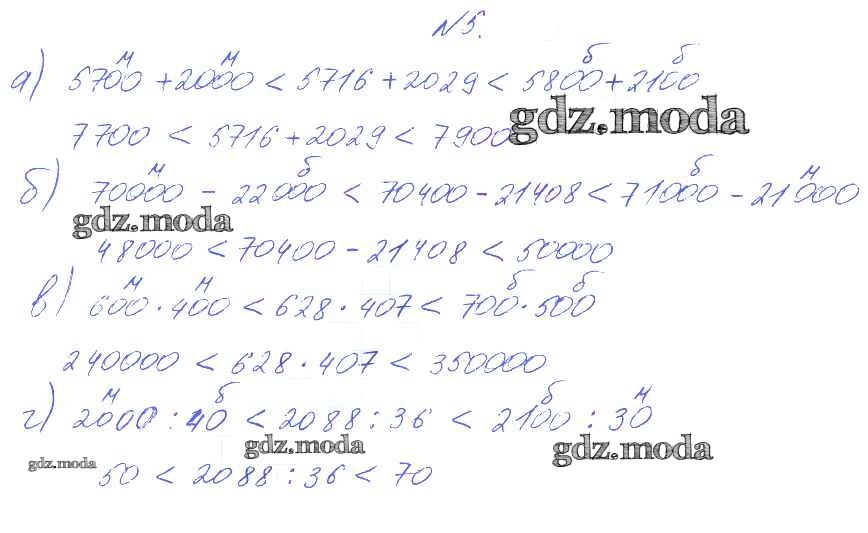 №5.
а) 5700 + 2000 < 5716 + 2029 < 5800 + 2100
м м б б
7700 < 5716 + 2029 < 7900
gdz.moda
б) 70000 - 22000 < 70400 - 21408 < 71000 - 21000
м б б м
gdz.moda
48000 < 70400 - 21408 < 50000
в) 600 · 400 < 628 · 407 < 700 · 500
м м б б
240000 < 628 · 407 < 350000
г) 2000 : 40 < 2088 : 36 < 2100 : 30
м б б м
gdz.moda gdz.moda gdz.moda
50 < 2088 : 36 < 70